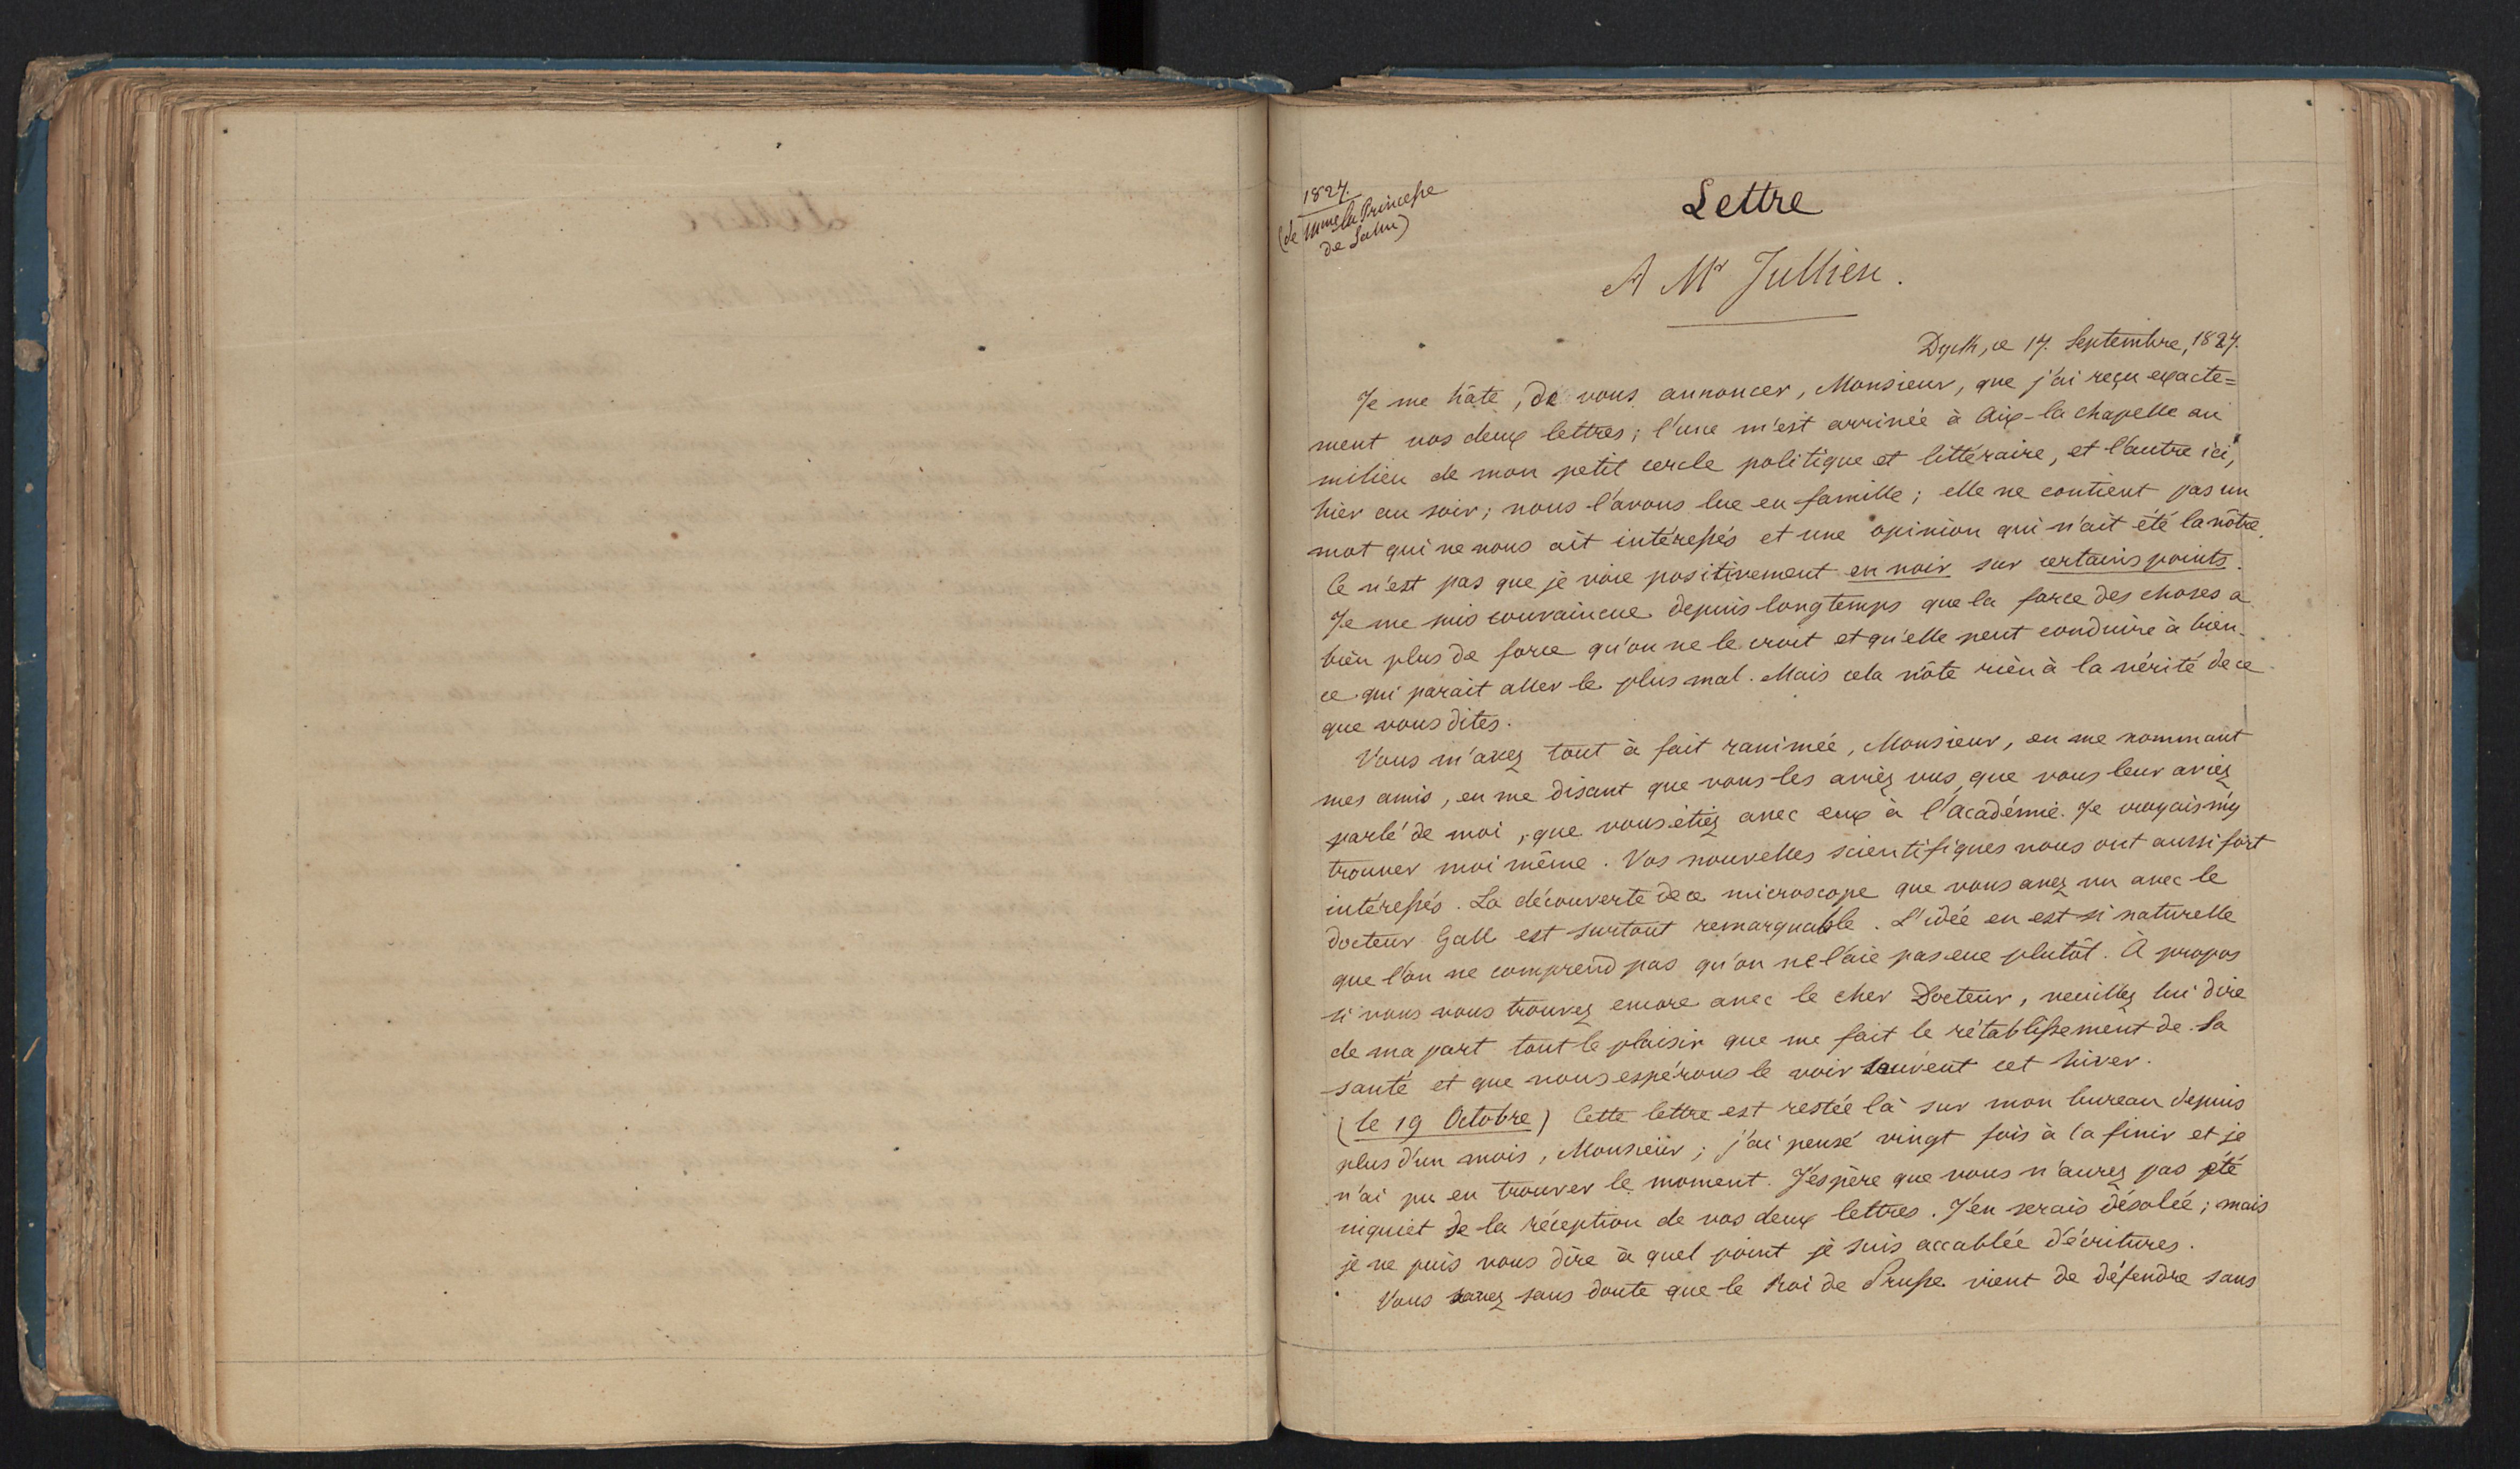 1827.
(de Mme la Princesse
de Salm)
Lettre
A Mr Jullien.
Dyck, ce 17. Septembre, 1827.
Je me hâte, de vous annoncer, Monsieur, que j'ai reçu exacte=
ment vos deux lettres; l'une m'est arrivée à Aix-la chapelle au
milieu de mon petit cercle politique et littéraire, et l'autre ici,
hier au soir; nous l'avons lue en famille; elle ne contient pas un
mot qui ne nous ait intéressés et une opinion qui n'ait été la nôtre.
Ce n'est pas que je voie positivement en noir sur certains points.
Je me suis convaincue depuis longtemps que la force des choses a
bien plus de force qu'on ne le croit et qu'elle peut conduire à bien
ce qui parait aller le plus mal. Mais cela n'ôte rien à la vérité de ce
que vous dites.
Vous m'avez tout à fait ranimée, Monsieur, en me nommant
mes amis, en me disant que vous les aviez vus, que vous leur aviez
parlé de moi, que vous étiez avec eux à l'académie. Je croyais m'y
trouver moi même. Vos nouvelles scientifiques nous ont aussi fort
intéressés. La découverte de ce microscope que vous avez vu avec le
docteur Gall est surtout remarquable. L'idée en est si naturelle
que l'on ne comprend pas qu'on ne l'aie pas eue plutôt. À propos
si vous vous trouvez encore avec le cher Docteur, veuillez lui dire
de ma part tout le plaisir que me fait le rétablissement de sa
santé et que nous espérons le voir souvent cet hiver.
(le 19 Octobre) Cette lettre est restée là sur mon bureau depuis
plus d'un mois, Monsieur; j'ai pensé vingt fois à la finir et je
n'ai pu en trouver le moment. J'espère que vous n'aurez pas été
inquiet de la réception de vos deux lettres. J'en serais désolée; mais
je ne puis vous dire à quel point je suis accablée d'écritures.
Vous savez sans doute que le Roi de Prusse vient de défendre sans